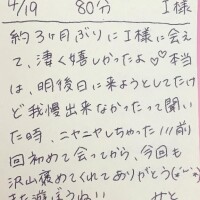 4/19 80分 I様
約3ヶ月ぶりにI様に会え
て、凄く嬉しかったよ♡♡本当
は、明後日に来ようとしてたけ
ど我慢出来なかったって聞い
た時、ニヤニヤしちゃった///前
回初めて会ってから、今回も
沢山褒めてくれてありがとう(*´꒳`*)
また遊ぼうねぃ